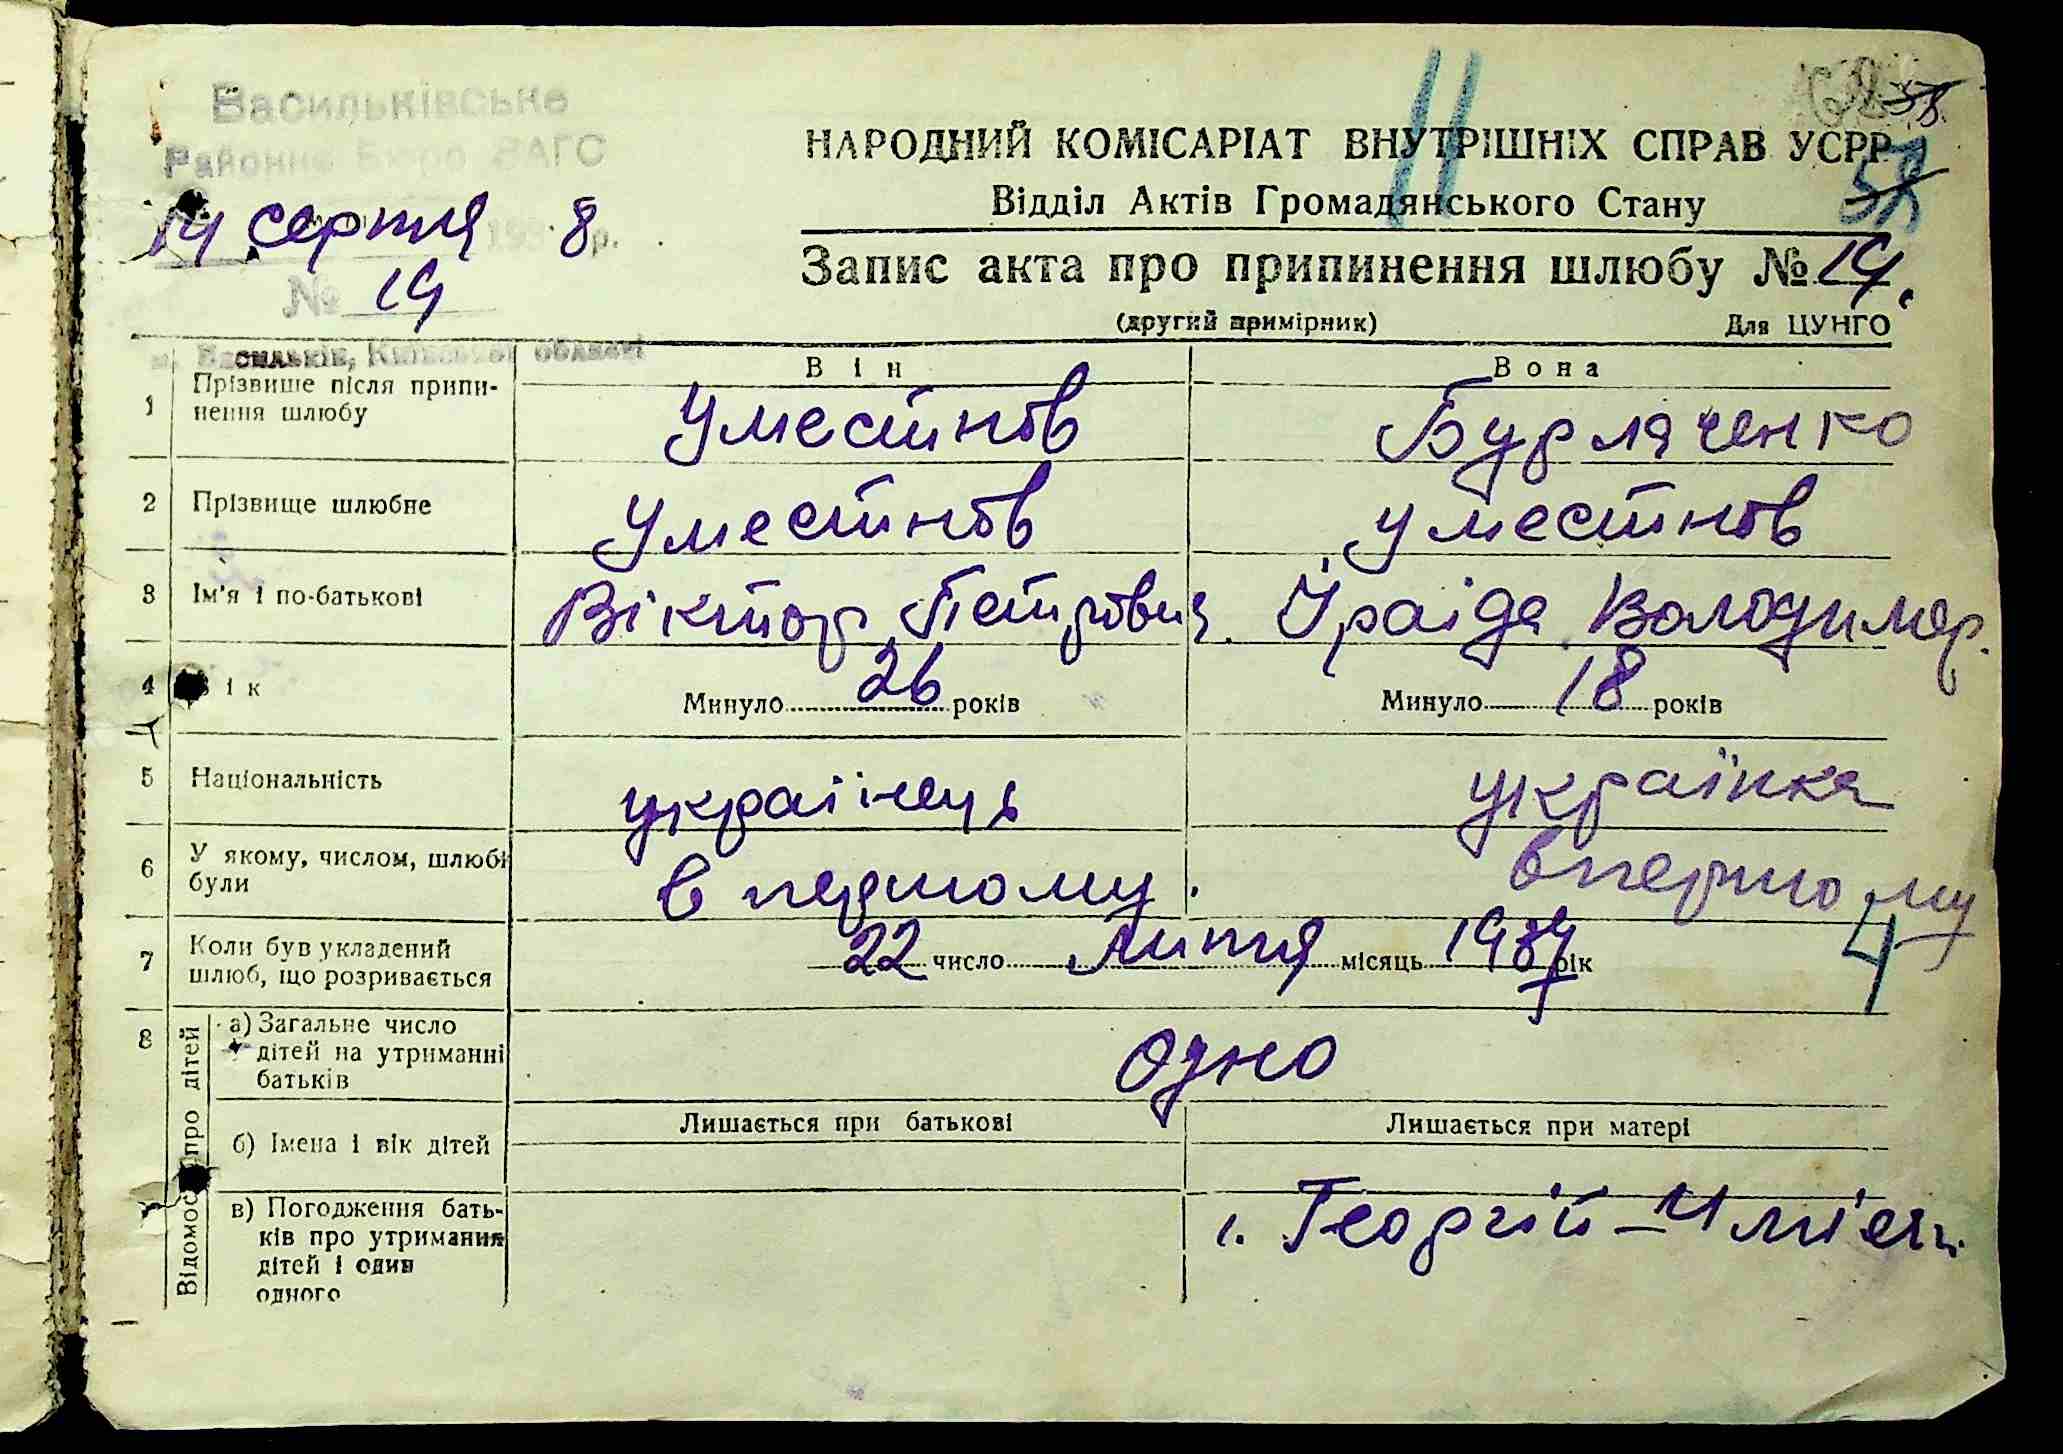 Васильківське
Районне Бюро ЗАГС
14 серпня 193 8 р.
№ 19
м. Васильків, Київської області
НАРОДНИЙ КОМІСАРІАТ ВНУТРІШНІХ СПРАВ УСРР
Відділ Актів Громадянського Стану
Запис акта про припинення шлюбу № 19.
(другий примірник) Для ЦУНГО
Він Вона
1 Прізвище після припи-
нення шлюбу
Уместнов Бурляченко
2 Прізвище шлюбне Уместнов Уместнов
3 Ім'я і по-батькові Віктор Петрович Іраїда Володимер.
4 Вік Минуло 26 років Минуло 18 років
5 Національність українець українка
6 У якому, числом, шлюбі
були
в першому. в першому
7 Коли був укладений
шлюб, що розривається
22 число липня місяць 1937 рік
4
8 Відомості про дітей
а) Загальне число
дітей на утриманні
батьків
Одно
б) Імена і вік дітей
Лишається при батькові Лишається при матері
1. Георгій – 4 міся
в) Погодження бать-
ків про утримання
дітей і один
одного